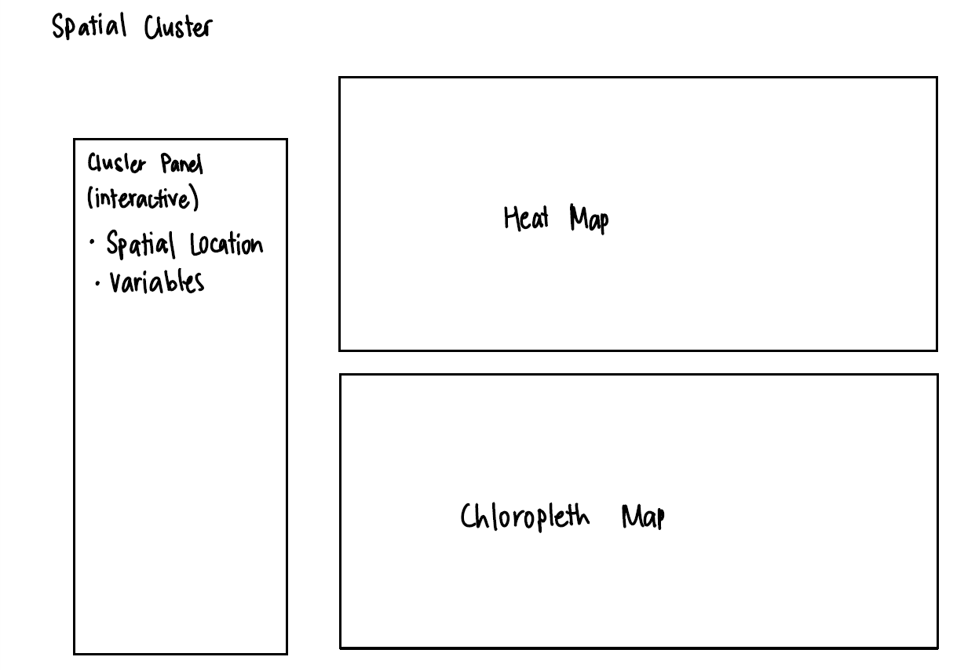 Spatial Cluster
Cluster Panel
(interactive)
· Spatial Location
· Variables
Heat Map
Chloropleth Map